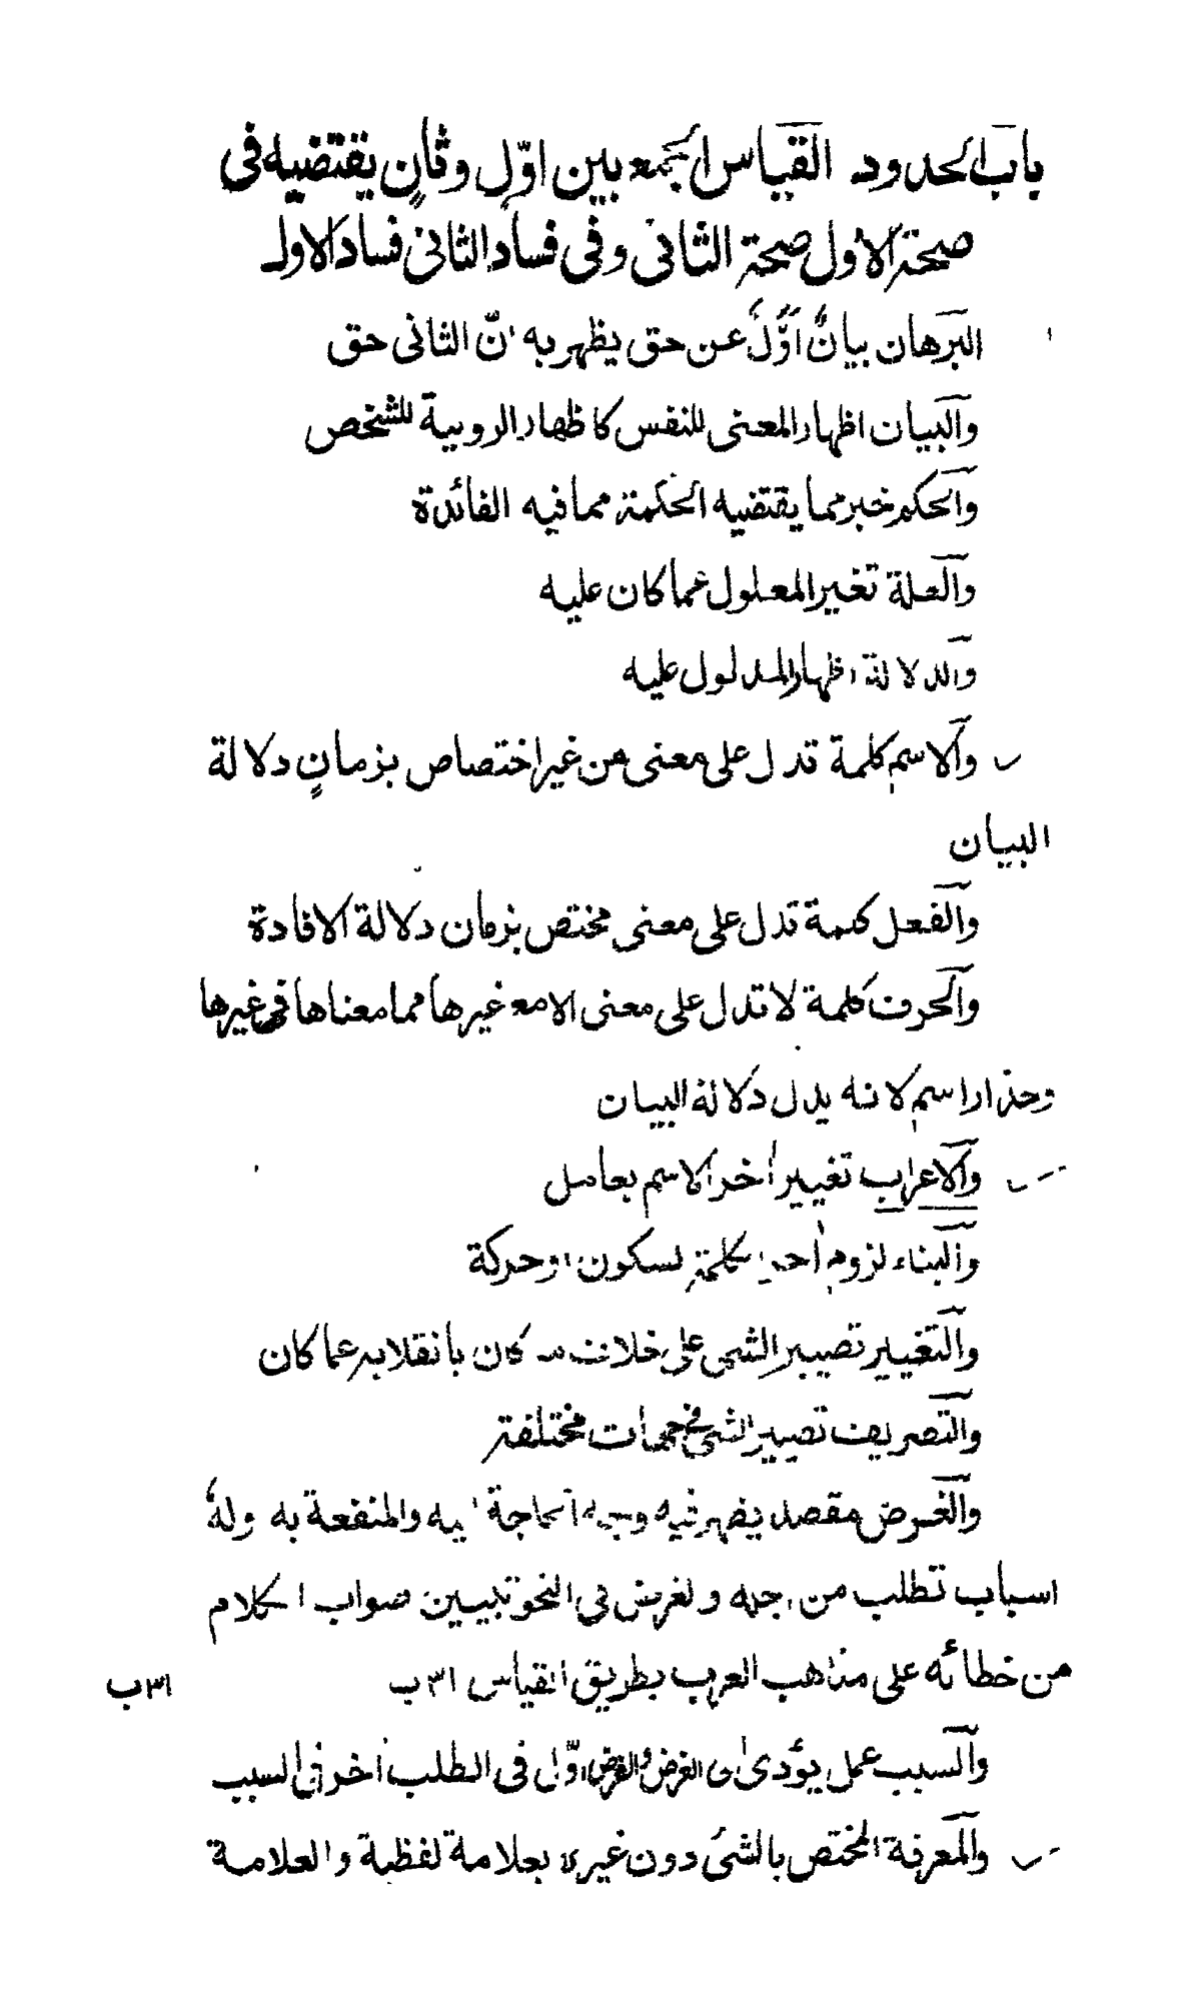 باب الحدود القياس الجمع بين اوّل وثانٍ يقتضيه فى
صحة الاول صحة الثانى وفى فساد الثانى فساد الاول
البرهان بيانٌ اوّلٌ عن حق يظهر به انّ الثانى حق
والبيان اظهار المعنى للنفس كاظهار الروبية للشخص
والحكم خبر مما يقتضيه الحكمة مما فيه الفائدة
والعلة تغير المعلول عما كان عليه
والدلالة اظهار المدلول عليه
والاسم كلمة تدل على معنى من غير اختصاص بزمانٍ دلالة
البيان
والفعل كلمة تدل على معنى مختص بزمان دلالة الافادة
والحرف كلمة لا تدل على معنى الا مع غيرها مما معناها فى غيرها
وحذار اسم لانه يدل دلالة البيان
والاعراب تغيير أخر الاسم بعامل
والبناء لزوم أخر الكلمة لسكون او حركة
والتغيير تصيير الشى على خلاف ما كان بانقلابه عما كان
والتصريف تصيير الشى فى جهات مختلفة
والغرض مقصد يظهر فيه وجه الحاجة اليه والمنفعة به وله
اسباب تطلب من اجله والغرض فى النحو تبيين صواب الكلام
من خطائه على مذاهب العرب بطريق القياس ٣١ب
٣١ب
والسبب عمل يؤدى الى الغرض والغرض اوّل فى الطلب أخر فى السبب
والمعرفة المختص بالشئ دون غيره بعلامة لفظية والعلامة